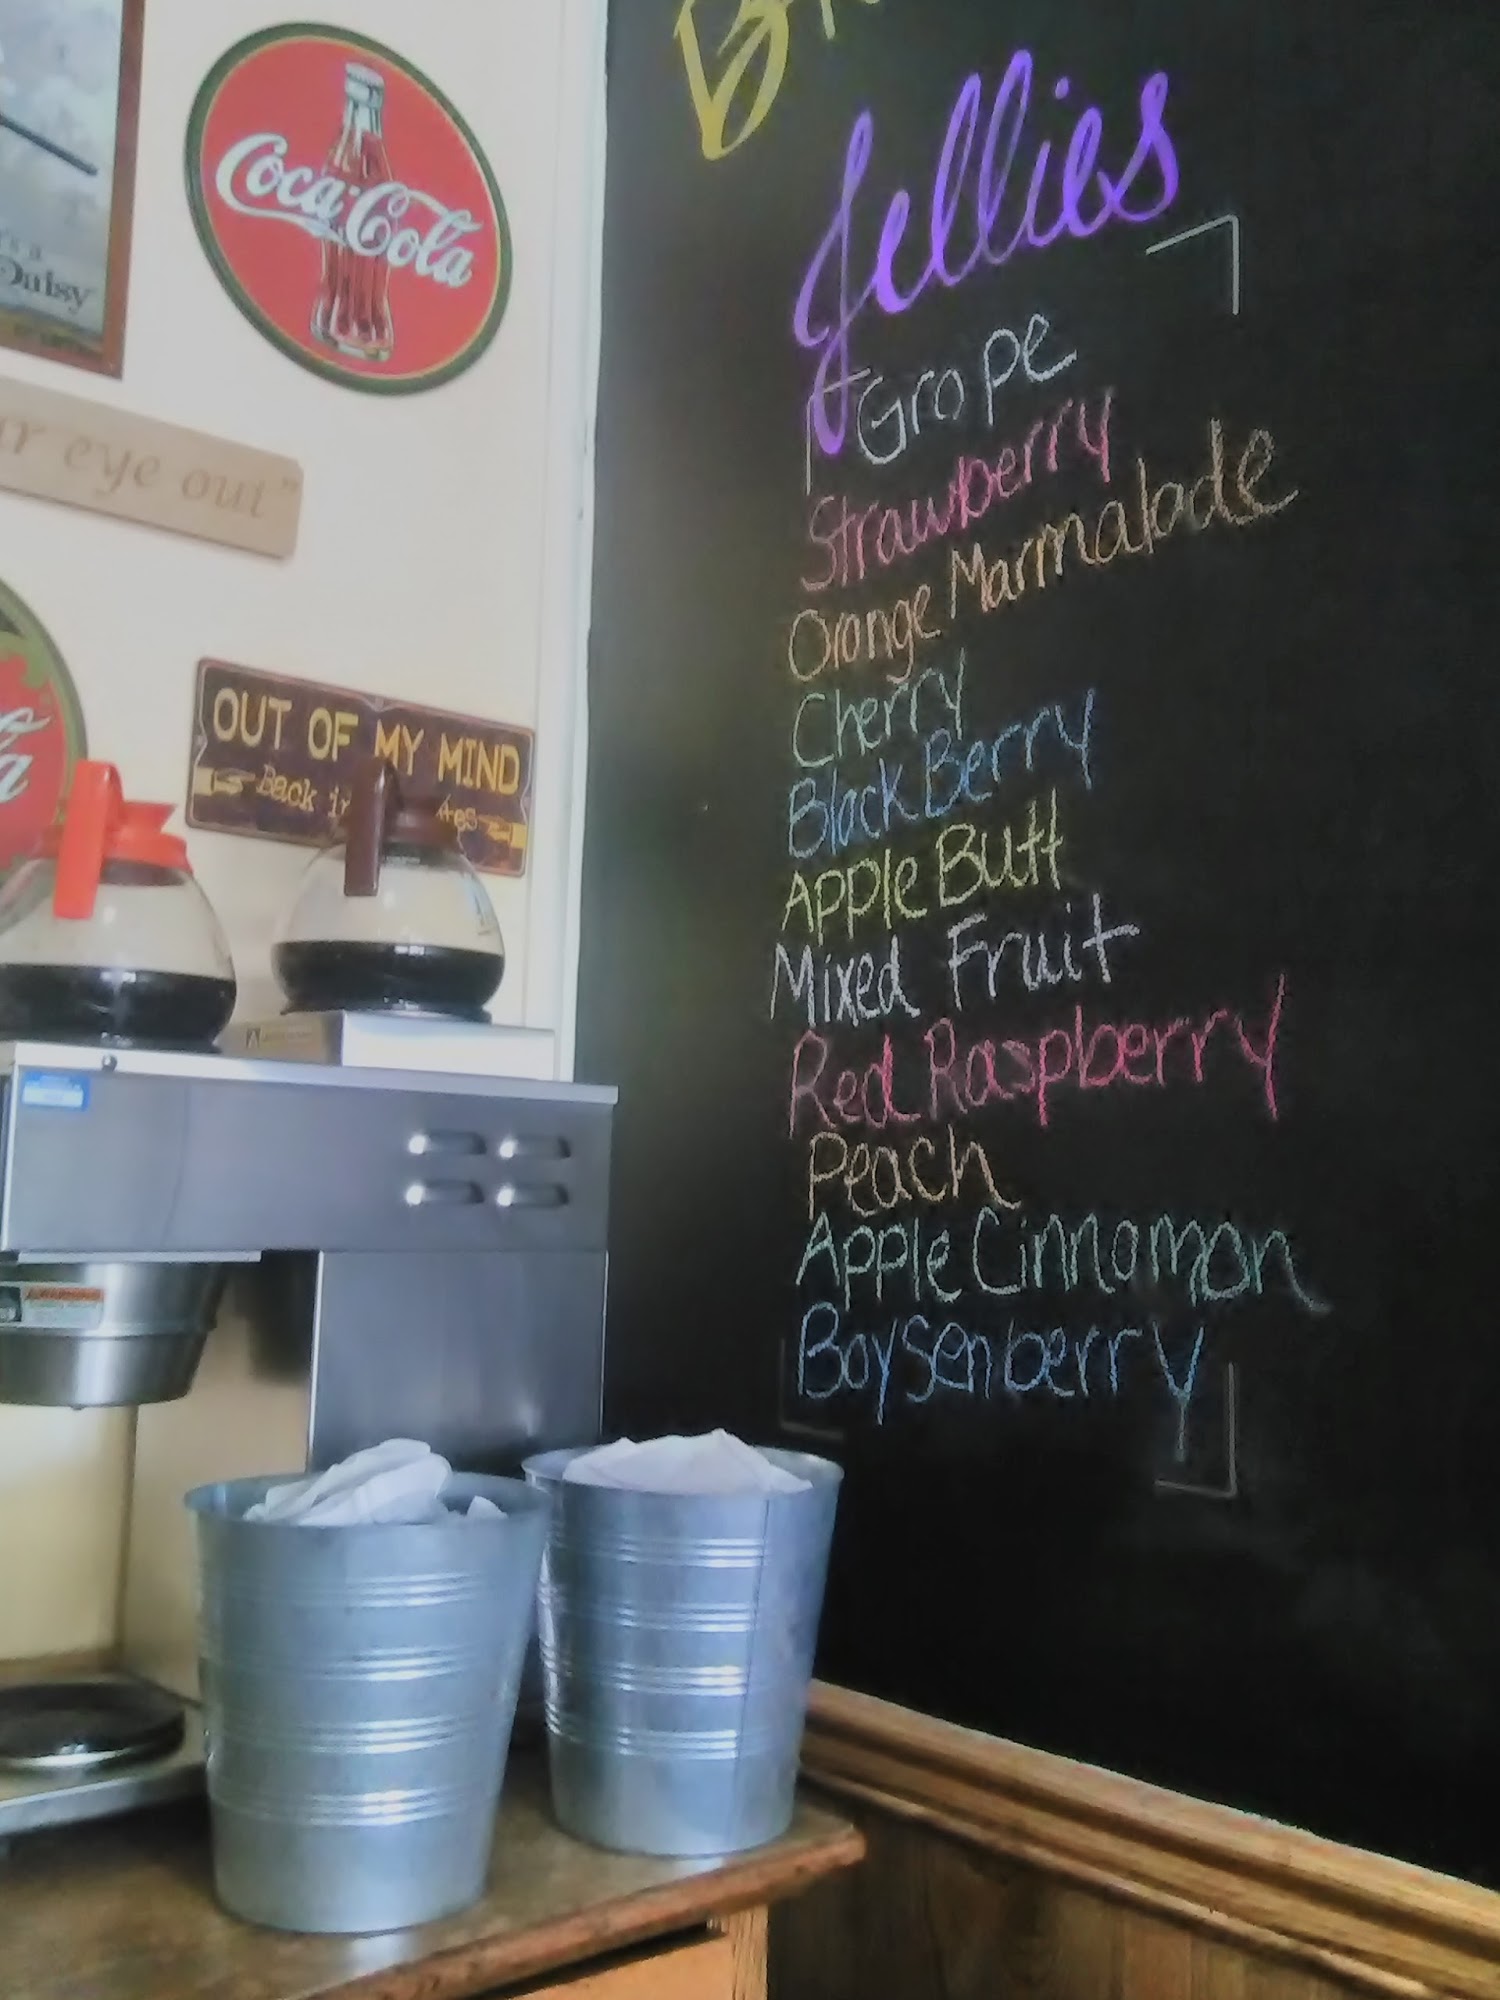 Coca-Cola
Daisy
eye out"
OUT OF MY MIND
Back in
Jellies
Grape
Strawberry
Orange Marmalade
Cherry
Black Berry
Apple Butt
Mixed Fruit
Red Raspberry
Peach
Apple Cinnamon
Boysenberry
WARNING